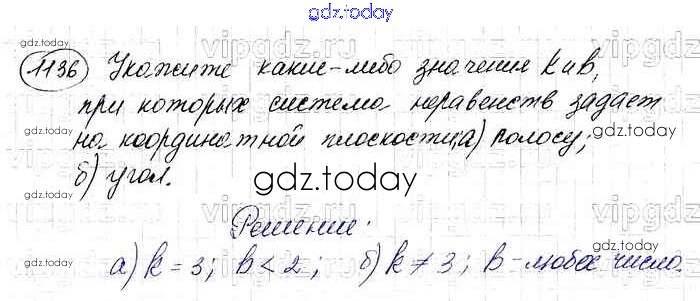 gdz.today
gdz.today
1136 Укажите какие-либо значения k и b,
при которых система неравенств задает
на координатной плоскости: а) полосу;
gdz.today
б) угол.
gdz.today
Решение:
а) k = 3; b < 2; б) k ≠ 3; b - любое число.
gdz.today
gdz.today